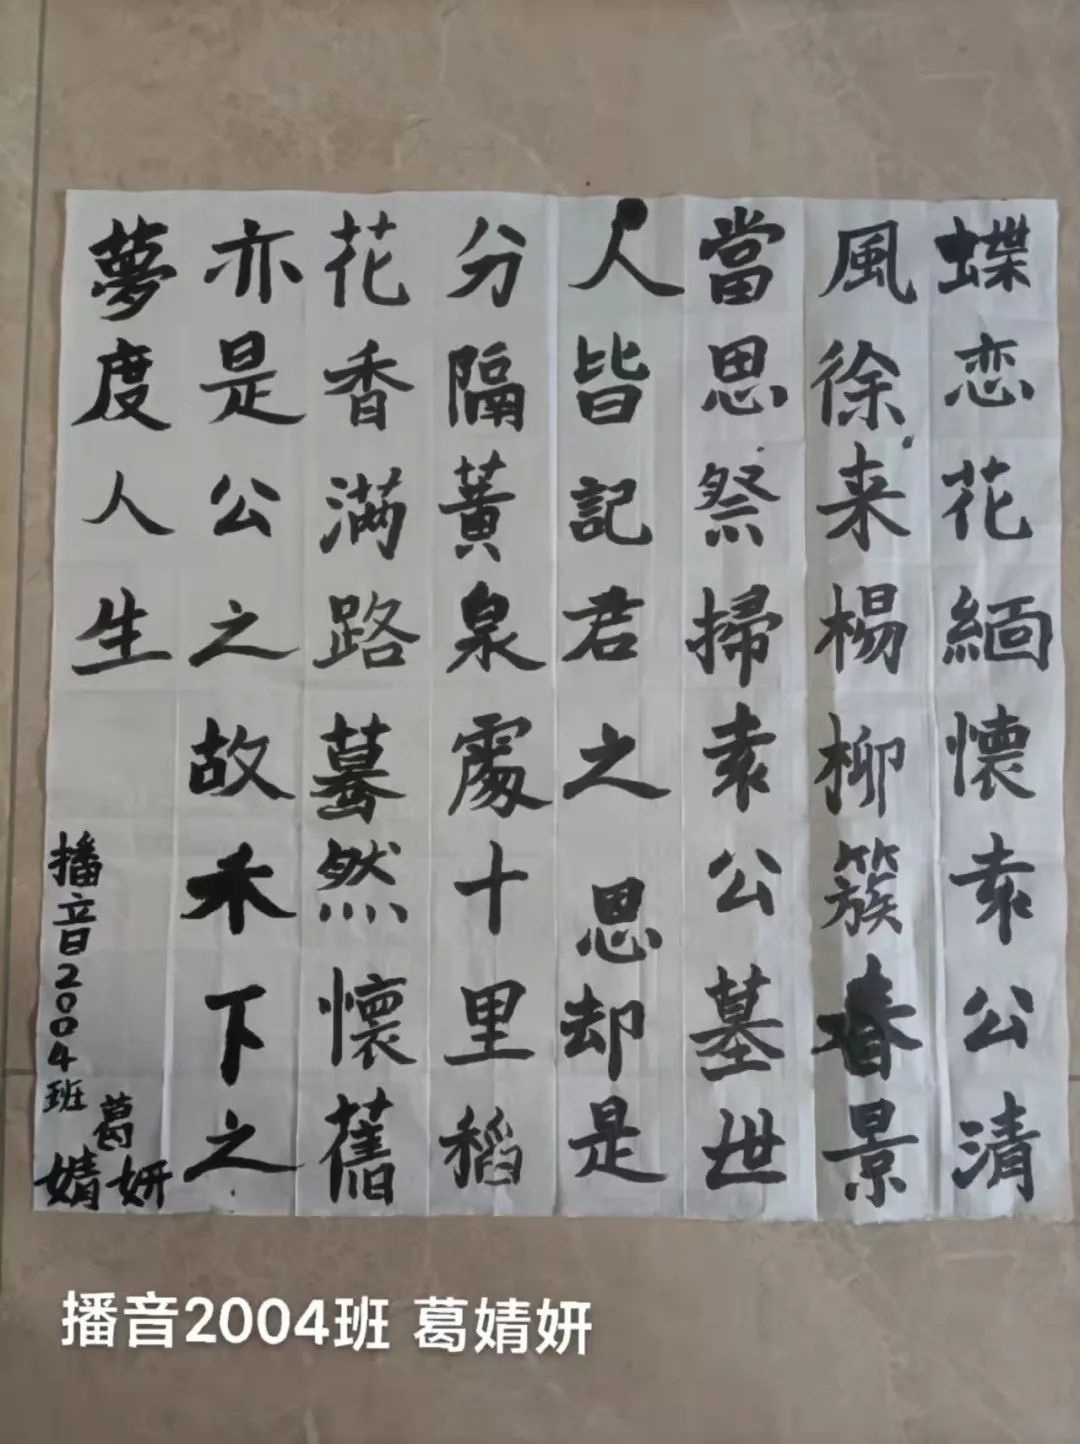 蝶恋花緬懷袁公清
風徐来楊柳簇春景
當思祭掃袁公墓世
人皆記君之思却是
分隔黃泉處十里稻
花香满路驀然懷舊
亦是公之故禾下之
夢度人生
播音2004班
葛婧妍
播音2004班 葛婧妍